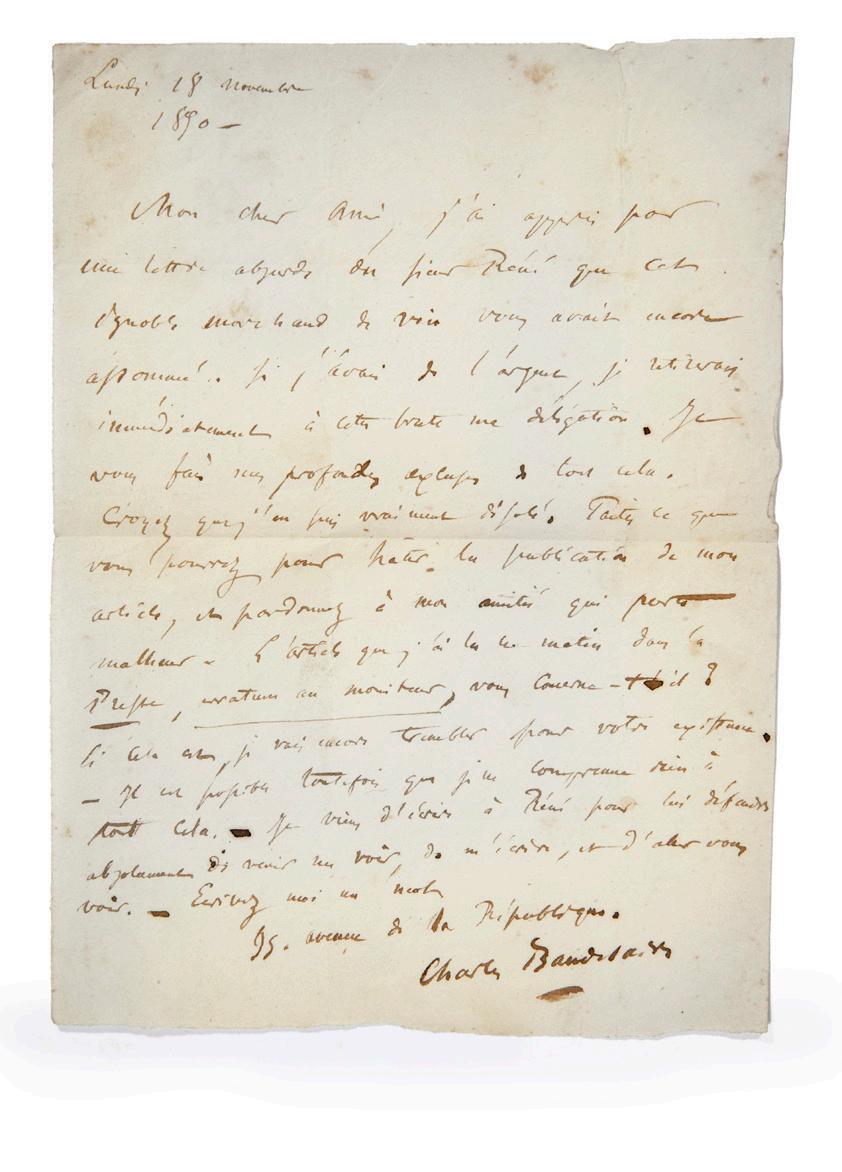 Lundi 18 novembre
1850 –
Mon cher ami, j'ai appris par
une lettre absurde du sieur Réné que cet
ignoble marchand de vin vous avait encore
assommé. Si j'avais de l'argent, je retirerais
immédiatement à cette brute ma délégation. Je
vous fais mes profondes excuses de tout cela.
Croyez que j'en suis vraiment désolé. Faites ce que
vous pourrez pour hâter la publication de mon
article, et pardonnez à mon amitié qui porte
malheur – L'article que j'ai lu ce matin dans la
Presse, erratum au moniteur, vous concerne-t-il ?
Si cela est, je vais encore trembler pour votre existence.
– Il est possible toutefois que je ne comprenne rien à
tout cela. – Je viens d'écrire à Réné pour lui défendre
absolument de venir me voir, de m'écrire, et d'aller vous
voir. – Ecrivez moi un mot
95. avenue de la République.
Charles Baudelaire